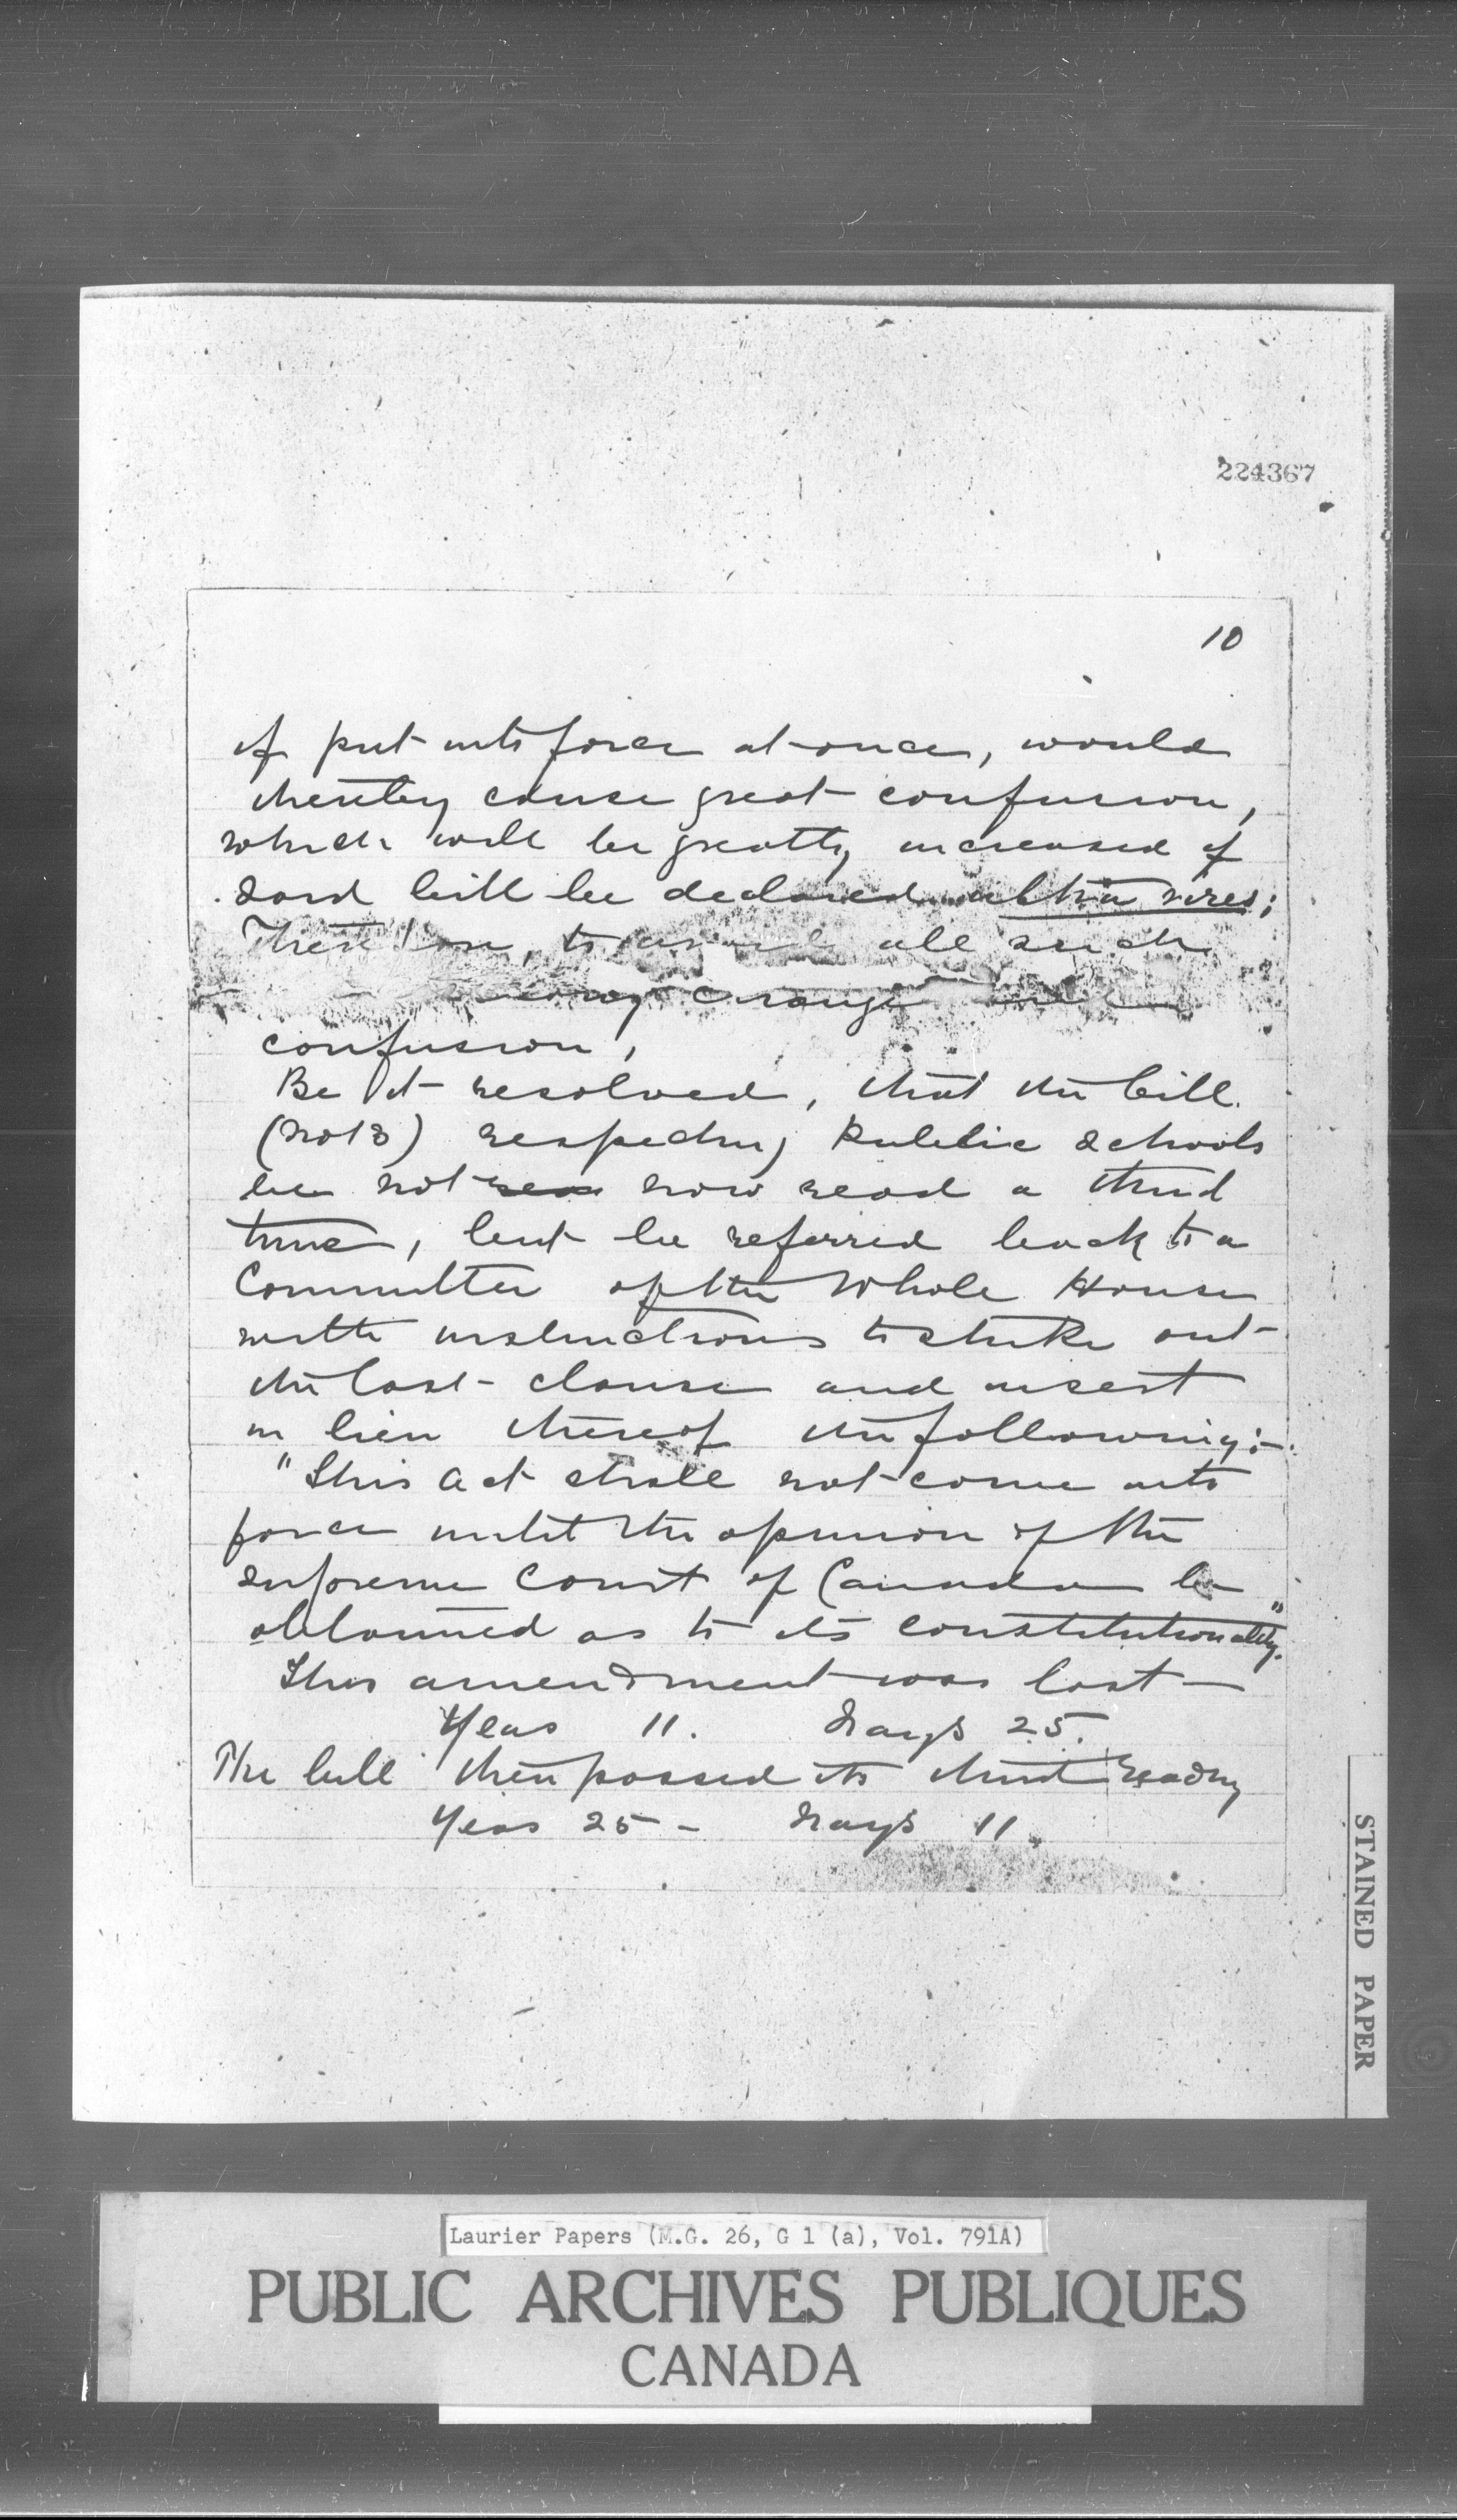 224367
10
if put into force at once, would
thereby cause great confusion,
which will be greatly increased if
said bill be declared ultra vires;
Therefore, to avoid all such
change and
confusion,
Be it resolved, that the bill
(No 13) respecting Public Schools
be not now read a third
time, but be referred back to a
Committee of the Whole House
with instructions to strike out
the last clause and insert
in lieu thereof the following:-
"This Act shall not come into
force until the opinion of the
supreme Court of Canada be
obtained as to its constitutionality."
This amendment was lost -
Yeas 11. Nays 25.
The bill then passed its third reading
Yeas 25 - Nays 11.
STAINED PAPER
Laurier Papers (M.G. 26, G 1 (a), Vol. 791A)
PUBLIC ARCHIVES PUBLIQUES
CANADA